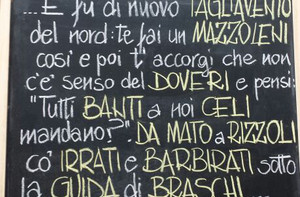 ... E fu di nuovo TAGLIAVENTO
del nord: te fai un MAZZOLENI
così e poi t'accorgi che non
c'è senso del DOVERI e pensi:
"Tutti BANTI a noi CELI
mandano?". DA MATO a RIZZOLI
co' IRRATI e BARBIRATI sotto
la GUIDA di BRASCHI...